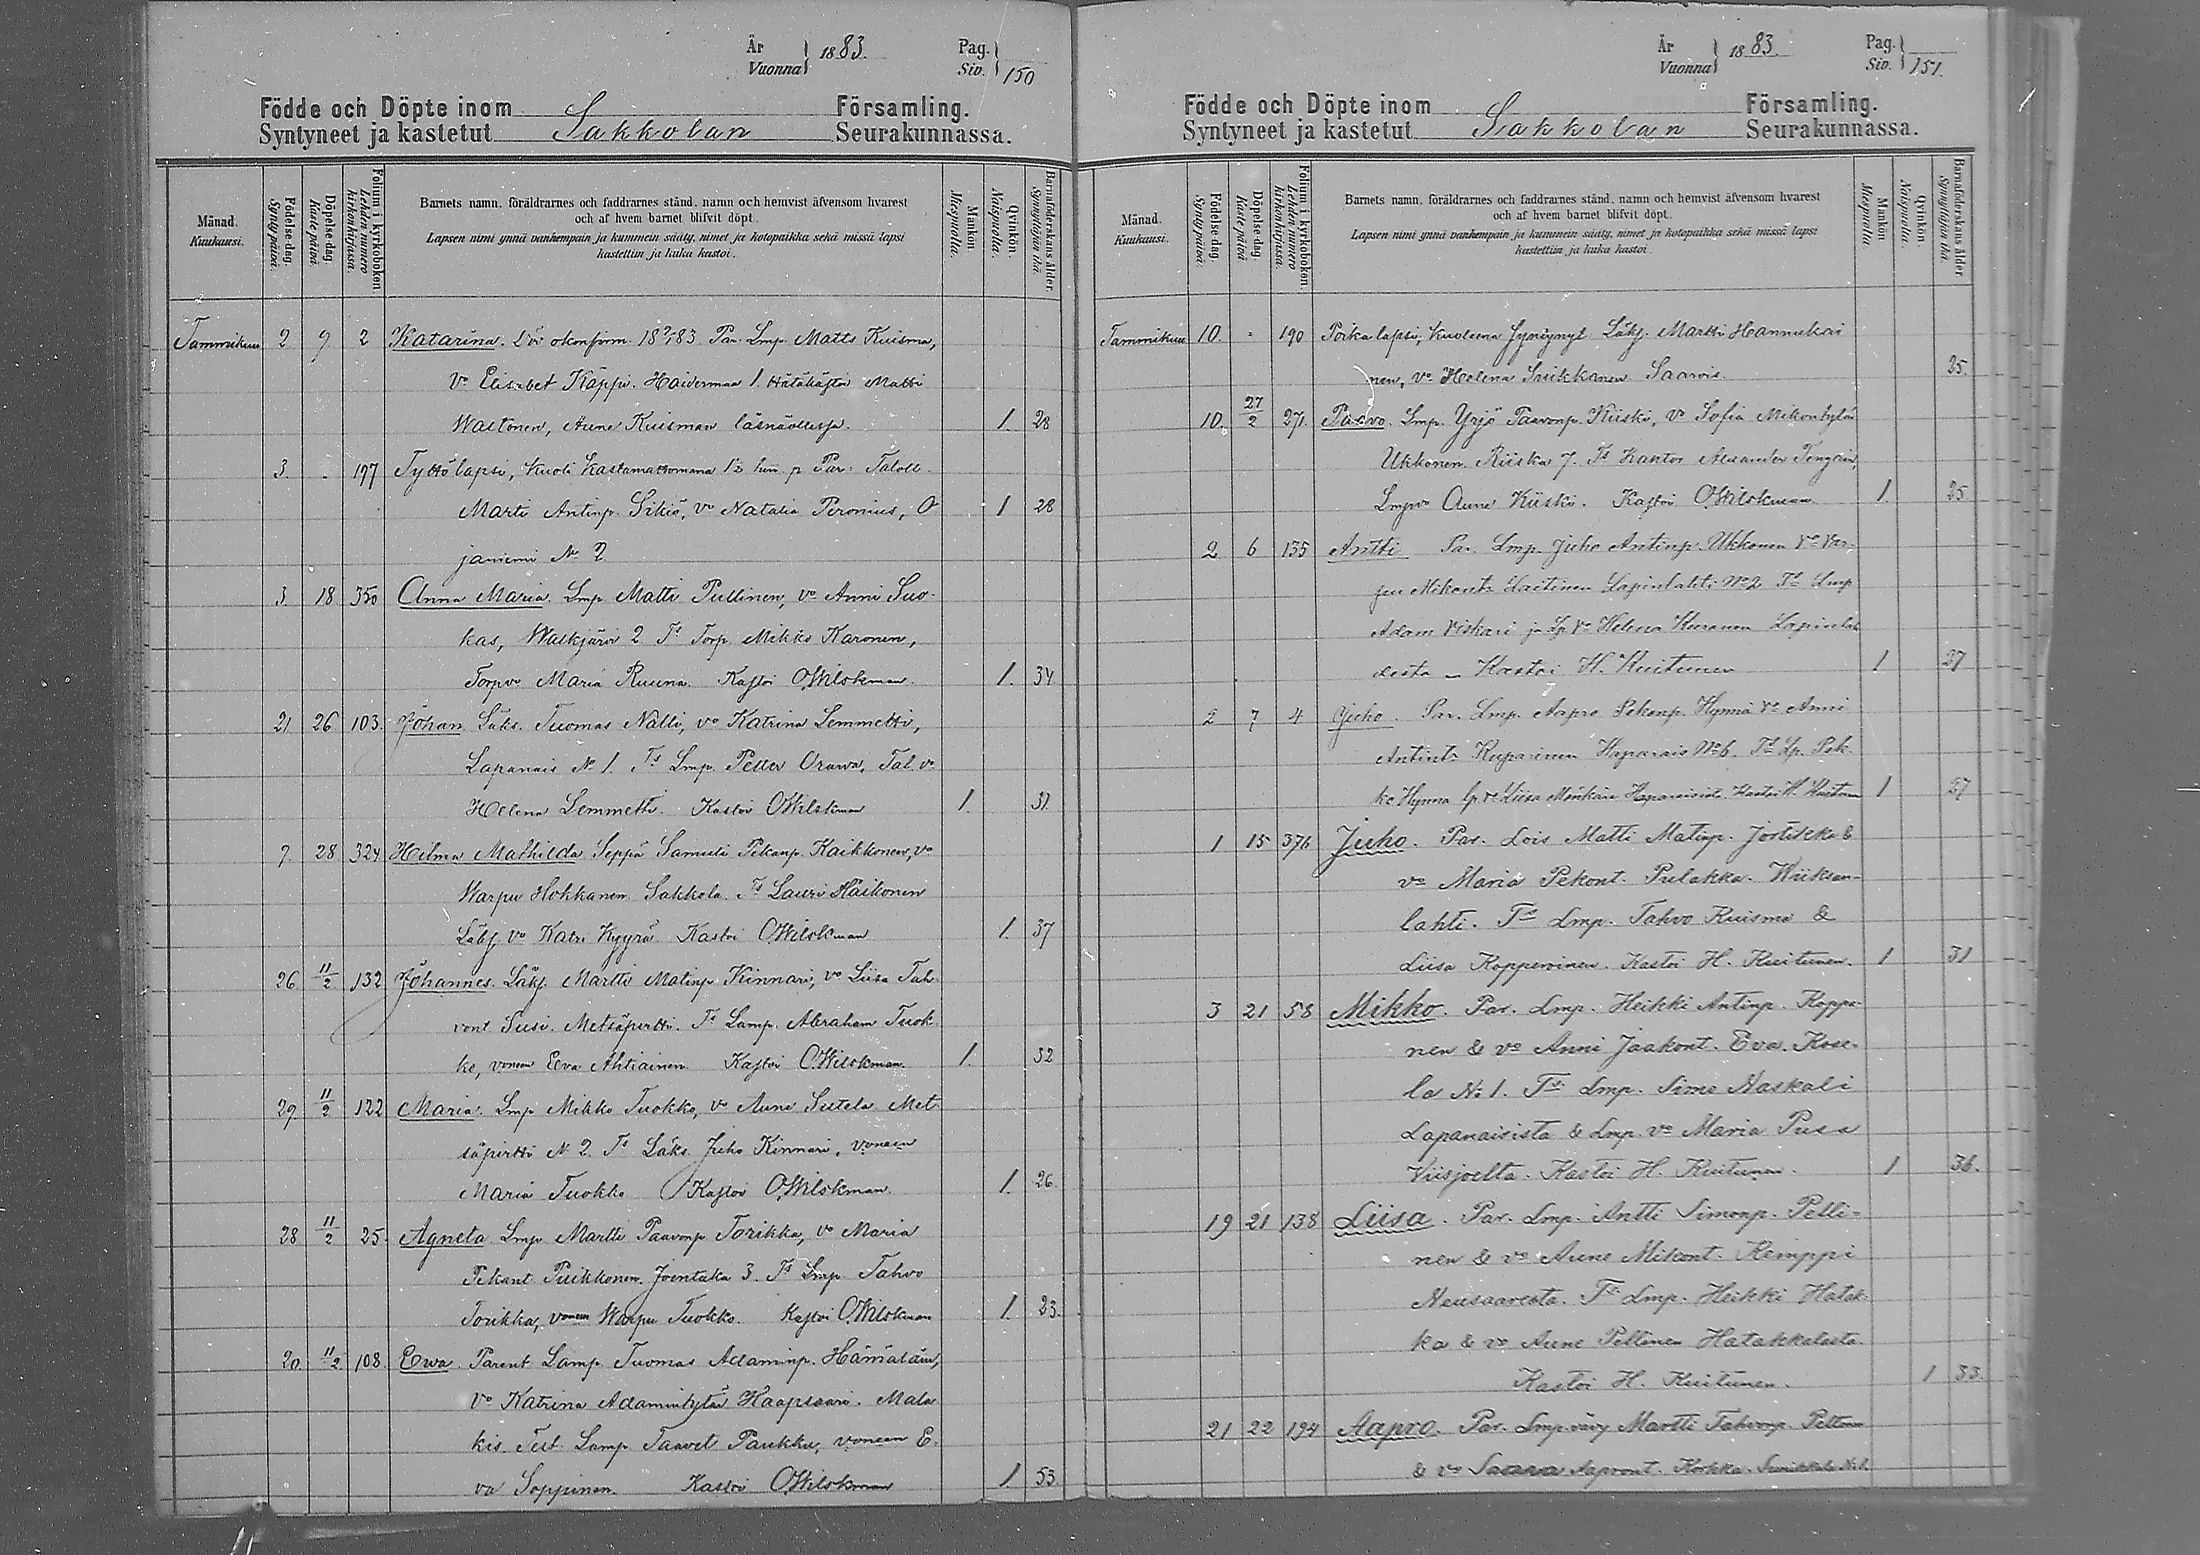 År 1883. Pag.
Vuonna Siv. 150
Födde och Döpte inom Församling.
Syntyneet ja kastetut Sakkolan Seurakunnassa.
Månad. Kuukausi.
Födelse-dag. Synty päivä.
Döpelse-dag. Kaste päivä.
Folium i kyrkoboken. Lehden numero kirkonkirjassa.
Barnets namn, föräldrarnes och faddrarnes stånd, namn och hemvist äfvensom hvarest
och af hvem barnet blifvit döpt.
Lapsen nimi ynnä vanhempain ja kummein sääty, nimet ja kotopaikka sekä missä lapsi
kastettiin ja kuka kastoi.
Mankön. Miespuolia.
Qvinkön. Naispuolia.
Barnaföderskans ålder. Synnyttäjän ikä.
Tammikuu 2 9 2 Katarina. Par. Lmp. Matts Kuisma,
vo Elisabet Käppi. Haiderman 1. Hätäkastoi Matti
Wastonen, Aune Kuisman läsnäollessa. 1. 28
3. - 197 Tyttölapsi, kuoli kastamattomana Par. Taloll.
Martti Antinp. Sikiö, vo Natalia Peronius, O
janiemi No 2. 1 28
3. 18 350 Anna Maria. Lmp Matti Pullinen, vo Anni Suo-
kas, Walkjärvi 2 Ts Torp. Mikko Karonen,
Torpvo Maria Ruuna. Kastoi O.Wilskman. 1. 34
21 26 103. Johan. Läks. Tuomas Nalli, vo Katrina Lemmetti,
Lapanais No 1. Ts Lmp. Petter Orawa, Tal. vo
Helena Lemmetti. Kastoi O.Wilskman 1. 31.
7. 28 324 Hilma Mathilda Seppä Samuli Pekanp. Kaikkonen, vo
Warpu Hokkanen. Sakkola. Ts Lauri Häikonen
Läks. vo Katri Kyyrä. Kastoi O.Wilskman 1. 37
26 11/2 132 Johannes. Läks. Martti Matinp. Kinnari, vo Liisa Tah-
vont. Susi. Metsäpirtti. Ts Lamp. Abraham Tuok
ko, vonsa Eeva Ahtiainen. Kastoi O.Wilskman. 1. 32
29 11/2 122 Maria. Lmp Mikko Tuokko, vo Aune Sutela. Met-
säpirtti N 2. Ts Läks. Juho Kinnari, vonsa
Maria Tuokko Kastoi O.Wilskman. 1. 26
28 11/2 25. Agneta. Lmp Martti Paavonp Torikka, vo Maria
Pekant. Puikkonen. Joentaka 3. Ts Lmp. Tahvo
Torikka, vonsa Warpu Tuokko. Kastoi O.Wilskman 1. 23.
20 11/2 108 Eewa. Parent Lamp. Tuomas Adaminp. Hämäläin,
vo Katrina Adamintytär Haapsaari. Mala
kis. Tut. Lamp. Taavet Paukku, vonsa E-
va Soppinen. Kastoi O.Wilskman 1. 53
År 1883. Pag.
Vuonna Siv. 151.
Födde och Döpte inom Församling.
Syntyneet ja kastetut Sakkolan Seurakunnassa.
Månad. Kuukausi.
Födelse-dag. Synty päivä.
Döpelse-dag. Kaste päivä
Folium i kyrkoboken. Lehden numero kirkonkirjassa.
Barnets namn, föräldrarnes och faddrarnes stånd, namn och hemvist äfvensom hvarest
och af hvem barnet blifvit döpt.
Lapsen nimi ynnä vanhempain ja kummein sääty, nimet ja kotopaikka sekä missä lapsi
kastettiin ja kuka kastoi.
Mankön. Miespuolia.
Qvinkön. Naispuolia.
Barnaföderskans ålder. Synnyttäjän ikä.
Tammikuu 10. - 190 Poika lapsi, kuolleena syntynyt Läks. Martti Hannukai
nen, vo Helena Suikkanen Saarois. 25.
10. 27/2 271. Paavo. Lmp. Yrjö Paavonp. Kiiski, vo Sofia Mikontytär
Ukkonen. Riiska 7. Ts Kantor Alexander Tengvin,
Lmpvo Aune Kiiski. Kastoi O.Wilskman 1. 25
2 6 135 Antti Par. Lmp. Juho Antinp. Ukkonen vo Var-
pu Mikontr Laitinen Lapinlahti No 2 Ts Lmp
Adam Viskari ja Lp vo Helena Kuranen Lapinlah
desta - Kastoi H. Kuitunen 1 27
2 7 4 Juho. Par. Lmp. Aapro Pekanp. Hynnä vo Anni
Antintr Kuparinen Haparais No 6. Ts Lp. Pek
ko Hynnä lp vo Liisa Mönkäre Haparaisista. Kastoi H. Kuitunen 1 27
1 15 376 Juho. Par. Lois Matti Matinp. Jortikka &
vo Maria Pekont. Pulakka. Wiiksan-
lahti. Ts Lmp. Tahvo Kuisma &
Liisa Kopperoinen. Kastoi H. Kuitunen. 1 31
3 21 58 Mikko. Par. Lmp. Heikki Antinp. Koppa-
nen & vo Anni Jaakont. Eva. Kose-
la No 1. Ts Lmp. Simo Naskali
Lapanaisista & Lmp. vo Maria Pusa
Viisjoelta. Kastoi H. Kuitunen. 1 36.
19 21 138 Liisa. Par. Lmp. Antti Simonp. Pelli-
nen & vo Aune Mikont. Kemppi
Neusaaresta. Ts Lmp. Heikki Hatak
ka & vo Aune Pellinen Hatakkalasta.
Kastoi H. Kuitunen. 1 33.
21 22 194 Aapro. Par. Lmp. vävy Martti Tahvonp. Peltonen
& vo Saara Aapront. Kokka.